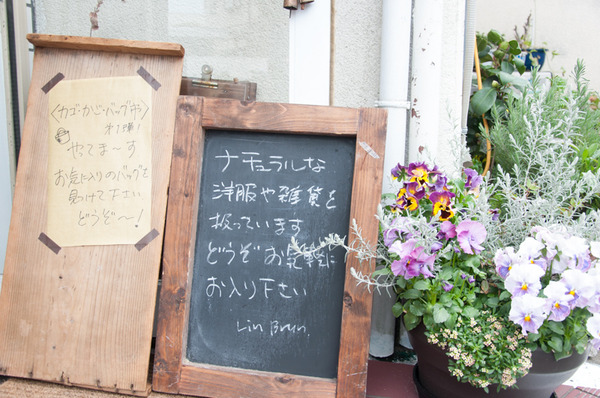 〈カゴ・かご・バッグ市〉
オ1弾！
やってま〜す
お気に入りのバッグを
見つけて下さい
どうぞ〜！
ナチュラルな
洋服や雑貨を
扱っています
どうぞお気軽に
お入り下さい
Lin Brun